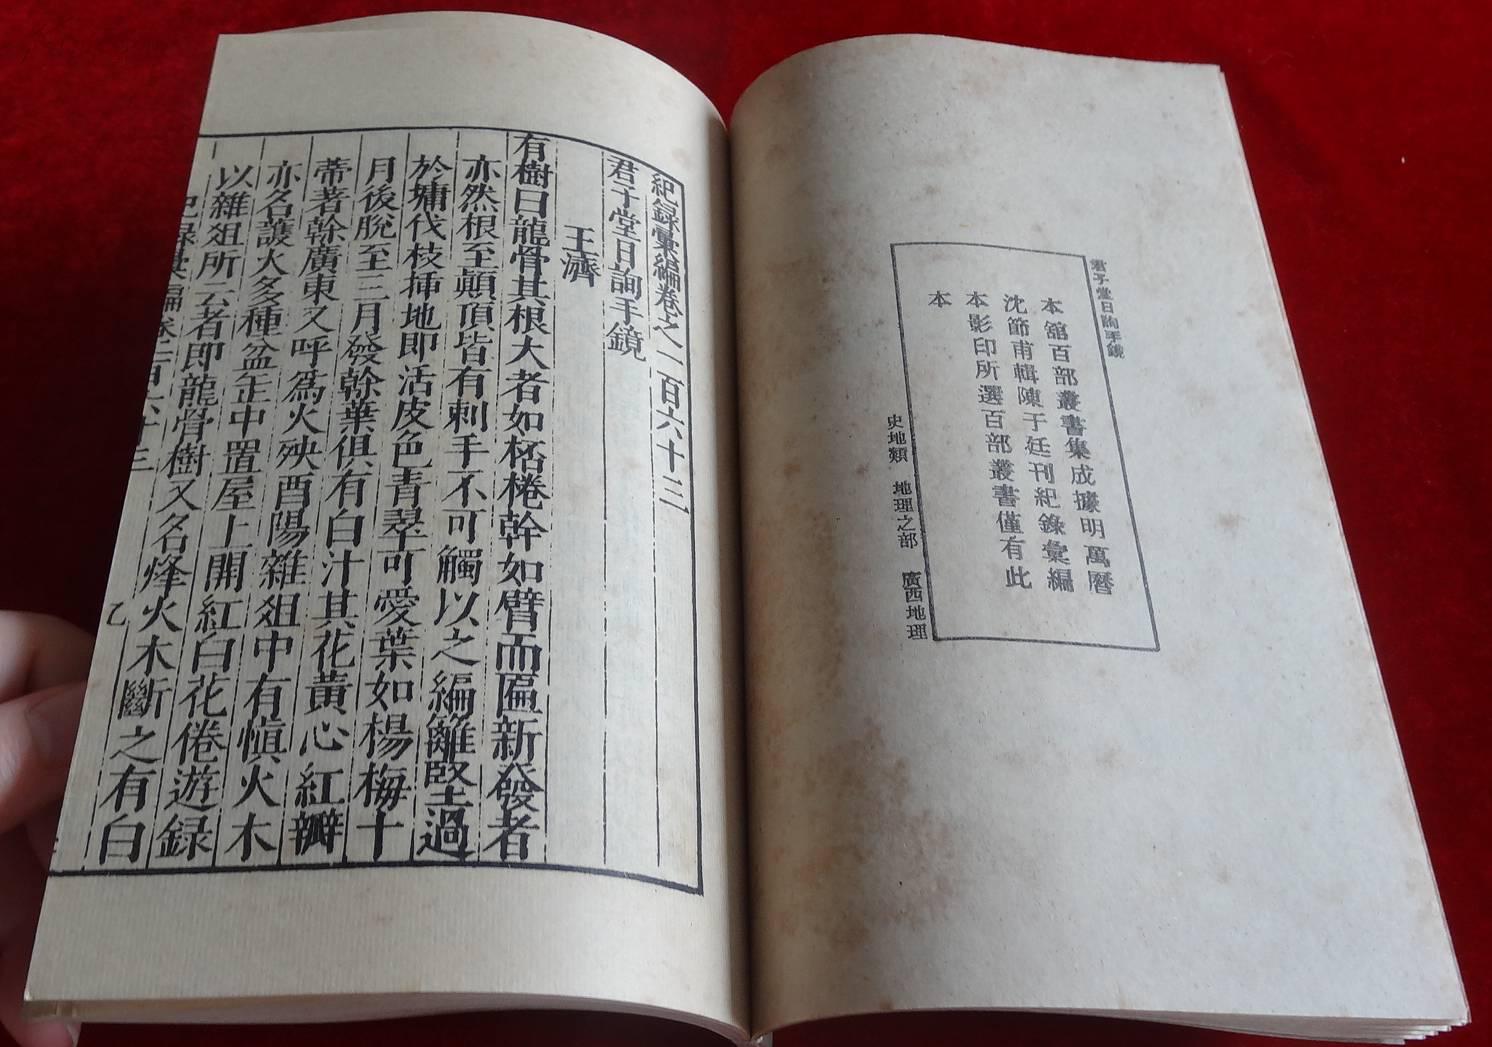 君子堂日詢手鏡
本館百部叢書集成據明萬曆
沈節甫輯陳于廷刊紀錄彙編
本影印所選百部叢書僅有此
本
史地類 地理之部 廣西地理
紀錄彙編卷之一百六十三
君子堂日詢手鏡
王濟
有樹曰龍骨其根大者如桮棬幹如臂而匾新發者
亦然根至顛頂皆有刺手不可觸以之編籬堅過
於墉伐枝挿地即活皮色青翠可愛葉如楊梅十
月後脫至三月發幹華俱有白汁其花黃心紅瓣
蒂著幹廣東又呼為火殃酉陽雜俎中有慎火木
亦名護火多種盆缶中置屋上開紅白花倦遊録
以雜俎所云者即龍骨樹又名烽火木斷之有白
紀録彙編卷一百六十三
乙